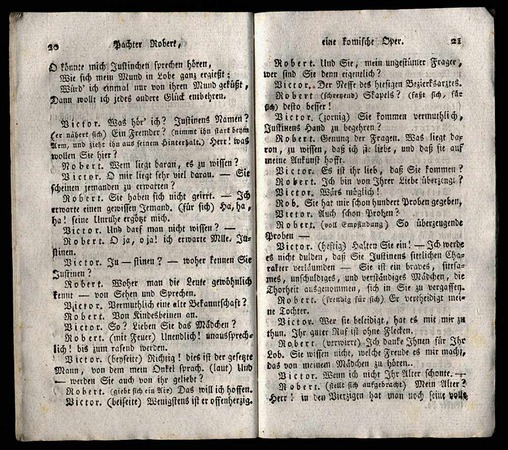 20
Pachter Robert,
O könnte mich Justinchen sprechen hören,
Wie sich mein Mund in Lobe ganz ergießt;
Würd' ich einmal nur von ihrem Mund geküßt,
Dann wollt ich jedes andere Glück entbehren.
Victor. Was hör' ich? Justinens Namen?
(er nähert sich) Ein Fremder? (nimmt ihn starr beym
Arm, und zieht ihn aus seinem Hinterhalt) Herr! was
wollen Sie hier?
Robert. Wem liegt daran, es zu wissen?
Victor. O mir liegt sehr viel daran. — Sie
scheinen jemanden zu erwarten?
Robert. Sie haben sich nicht geirrt. — Ich
erwarte einen gewissen Jemand. (für sich) Ha, ha,
ha! seine Unruhe ergözt mich.
Victor. Und darf man nicht wissen? —
Robert. O ja, oja! ich erwarte Mlle. Ju-
stinen.
Victor. Ju — stinen? — woher kennen Sie
Justinen?
Robert. Woher man die Leute gewöhnlich
kennt — von Sehen und Sprechen.
Victor. Vermuthlich eine alte Bekanntschaft?
Robert. Von Kindesbeinen an.
Victor. So? Lieben Sie das Mädchen?
Robert. (mit Feuer) Unendlich! unaussprech-
lich! bis zum rasend werden.
Victor. (beyseite) Richtig! dies ist der gesezte
Mann, von dem mein Onkel sprach. (laut) Und
— werden Sie auch von ihr geliebt?
Robert. (giebt sich ein Air) Das will ich hoffen.
Victor. (beiseite) Wenigstens ist er offenherzig.
eine komische Oper.
21
Robert. Und Sie, mein ungestümer Frager,
wer sind Sie denn eigentlich?
Victor. Der Neffe des hiesigen Bezirksarztes.
Robert (schreyend) Skapels? (faßt sich, für
sich) desto besser!
Victor. (zornig) Sie kommen vermuthlich,
Justinens Hand zu begehren?
Robert. Genung der Fragen. Was liegt dar-
von, zu wissen, daß ich sie liebe, und daß sie auf
meine Ankunft hofft.
Victor. Es ist ihr lieb, daß Sie kommen?
Robert. Ich bin von Ihrer Liebe überzeugt?
Victor. Wärs möglich!
Rob. Sie hat mir schon hundert Proben gegeben,
Victor. Auch schon Proben?
Robert. (voll Empfindung) So überzeugende
Proben —
Victor. (heftig) Halten Sie ein! — Ich werde
es nicht dulden, daß Sie Justinens sittlichen Cha-
rakter verläumden — Sie ist ein braves, sittsa-
mes, unschuldiges, und verständiges Mädchen, die
Thorheit ausgenommen, sich in Sie zu vergaffen.
Robert. (freudig für sich) Er vertheidigt mei-
ne Tochter.
Victor. Wer sie beleidigt, hat es mit mir zu
thun. Ihr guter Ruf ist ohne Flecken.
Robert. (verwirrt) Ich danke Ihnen für Ihr
Lob. Sie wissen nicht, welche Freude es mir macht,
das von meinem Mädchen zu hören..
Victor. Wenn ich nicht Ihr Alter schonte. —
Robert. (stellt sich aufgebracht) Mein Alter?
Herr! in den Vierzigen hat man noch seine volle